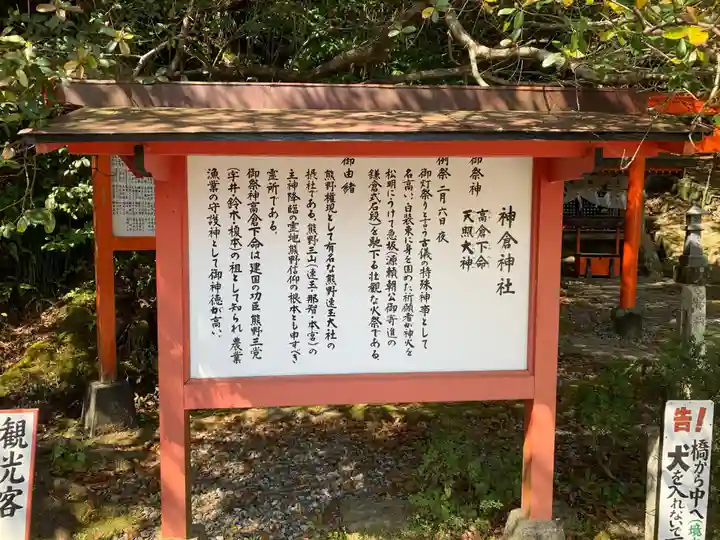 神倉神社
御祭神 高倉下命
天照大神
例祭 二月六日夜
御灯祭りと言う古儀の特殊神事として
名高い、白装束に身を固めた祈願者が神火を
松明にうけ、急坂(源頼朝公御寄進の
鎌倉式石段)を馳下る壮観な火祭である。
御由緒
熊野権現として有名な熊野速玉大社の
摂社である。熊野三山(速玉・那智・本宮)の
主神降臨の霊地、熊野信仰の根本とも申すべき
霊所である。
御祭神高倉下命は建国の功臣、熊野三党
(宇井・鈴木・榎本)の祖として知られ、農業
漁業の守護神として御神徳が高い。
告!
橋から中へ(境
犬を入れないで下
観光客